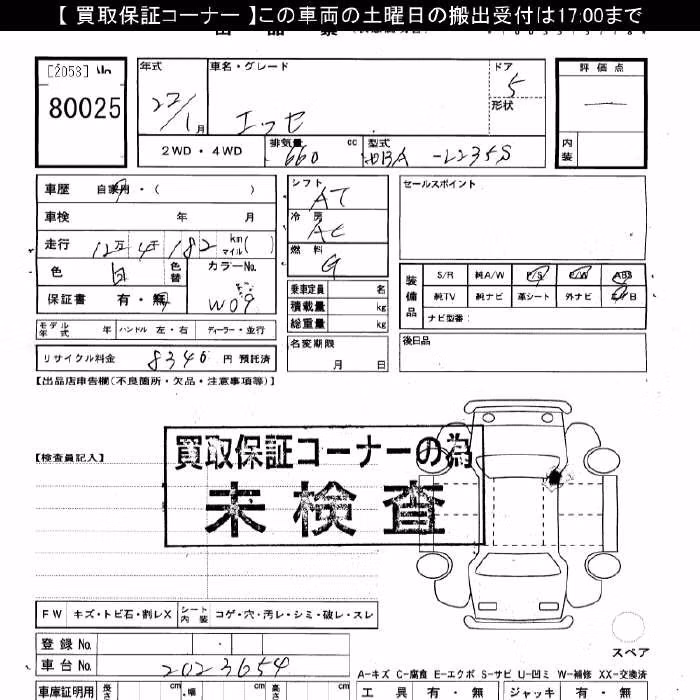 【 買取保証コーナー 】この車両の土曜日の搬出受付は17:00まで
[2053]
80025
年式 車名・グレード ドア 評価点
22/1月 エッセ 5
形状
2WD・4WD 排気量 660 cc 型式 DBA-L235S 内装
車歴 自家用・( )
車検 年 月
走行 12万4千182 km マイル ( )
色 白 色替 カラーNo. W09
保証書 有・無
モデル年式 年 ハンドル 左・右 ディーラー・並行
リサイクル料金 8340 円 預託済
シフト AT
冷房 AC
燃料 G
乗車定員 名
積載量 kg
総重量 kg
名変期限
月 日
セールスポイント
装備品 S/R 純A/W P/S P/W ABS
純TV 純ナビ 革シート 外ナビ エアB
ナビ型番:
後日品
【出品店申告欄(不良箇所・欠品・注意事項等)】
【検査員記入】
買取保証コーナーの為
未検査
FW キズ・トビ石・割レX シート内装 コゲ・穴・汚レ・シミ・破レ・スレ
登録 No.
車台 No. 2023654
スペア
A-キズ C-腐食 E-エクボ S-サビ U-凹ミ W-補修 XX-交換済
車庫証明用 長さ cm 幅 cm 高さ cm 工具 有・無 ジャッキ 有・無